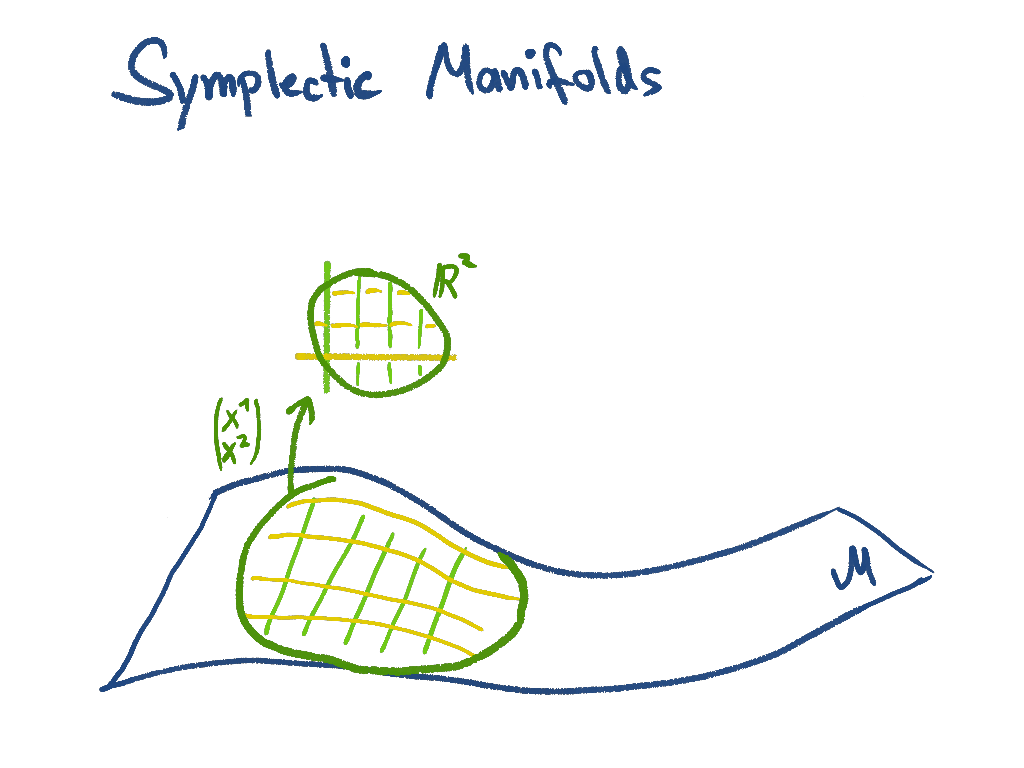 Symplectic Manifolds
ℝ²
(x¹
x²)
M